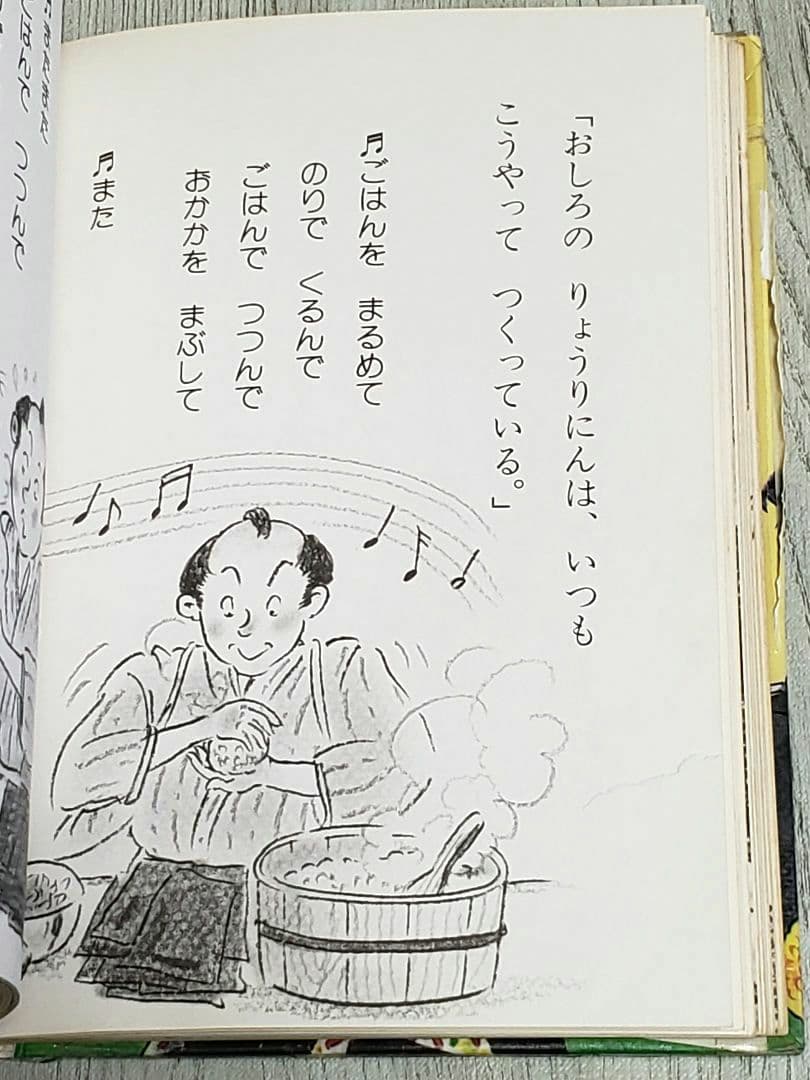 「おしろの　りょうりにんは、　いつも
こうやって　つくっている。」
♬ごはんを　まるめて
のりで　くるんで
ごはんで　つつんで
おかかを　まぶして
♬また